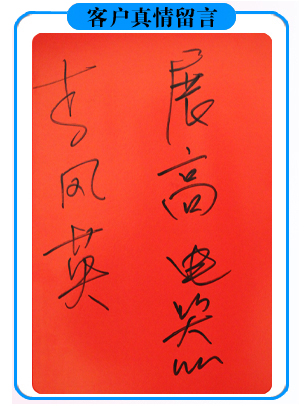 客户真情留言
展高电器
李凤英